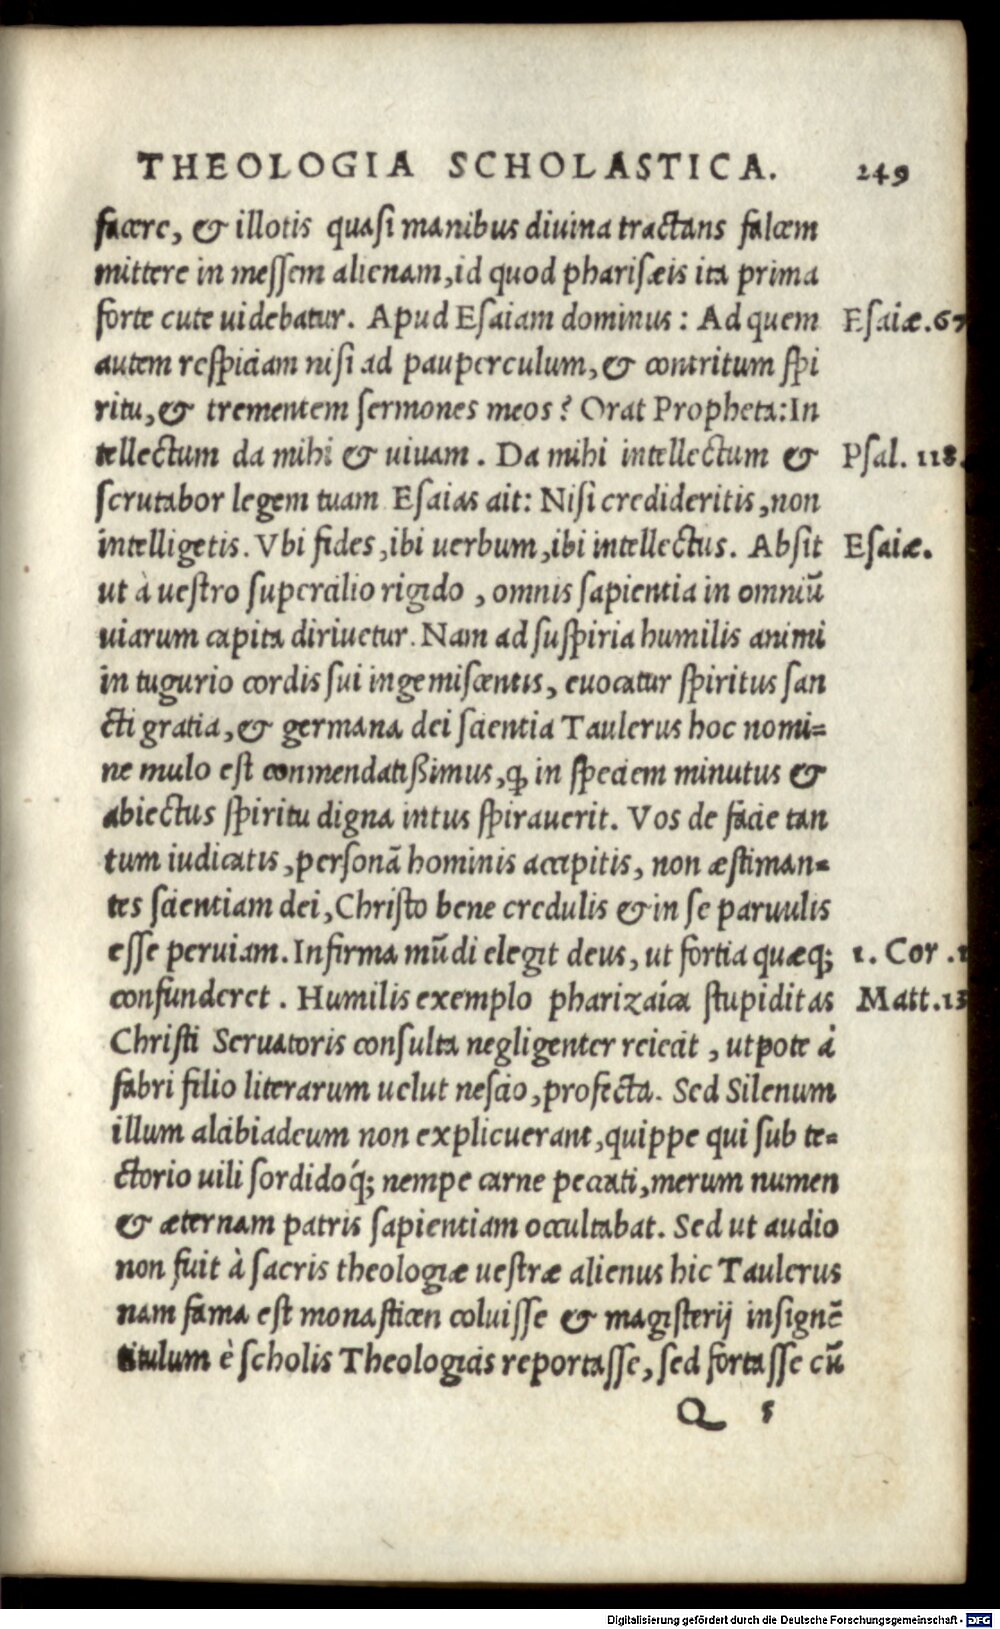 THEOLOGIA SCHOLASTICA. 249
facere, & illotis quasi manibus divina tractans falcem
mittere in messem alienam, id quod pharisæis ita prima
forte cute uidebatur. Apud Esaiam dominus: Ad quem Esaiæ.67
autem respiciam nisi ad pauperculum, & contritum spi
ritu, & trementem sermones meos? Orat Propheta: In
tellectum da mihi & uiuam. Da mihi intellectum & Psal. 118.
scrutabor legem tuam Esaias ait: Nisi credideritis, non
intelligetis. Vbi fides, ibi uerbum, ibi intellectus. Absit Esaiæ.
ut à uestro supercilio rigido, omnis sapientia in omniũ
uiarum capita diriuetur. Nam ad suspiria humilis animi
in tugurio cordis sui ingemiscentis, euocatur spiritus san
cti gratia, & germana dei scientia Taulerus hoc nomi=
ne mulo est conmendatißimus, ꝙ in speciem minutus &
abiectus spiritu digna intus spirauerit. Vos de facie tan
tum iudicatis, personã hominis accipitis, non æstiman=
tes scientiam dei, Christo bene credulis & in se paruulis
esse peruiam. Infirma mũdi elegit deus, ut fortia quæq; 1. Cor .1
confunderet. Humilis exemplo pharizaica stupiditas Matt.13
Christi Seruatoris consulta negligenter reiecit, utpote à
fabri filio literarum uelut nescio, profecta. Sed Silenum
illum alcibiadeum non explicuerant, quippe qui sub te=
ctorio uili sordidoq́; nempe carne peccati, merum numen
& æternam patris sapientiam occultabat. Sed ut audio
non fuit à sacris theologiæ uestræ alienus hic Taulerus
nam fama est monasticen coluisse & magisterij insignẽ
titulum è scholis Theologicis reportasse, sed fortasse cũ
Q 5
Digitalisierung gefördert durch die Deutsche Forschungsgemeinschaft - DFG